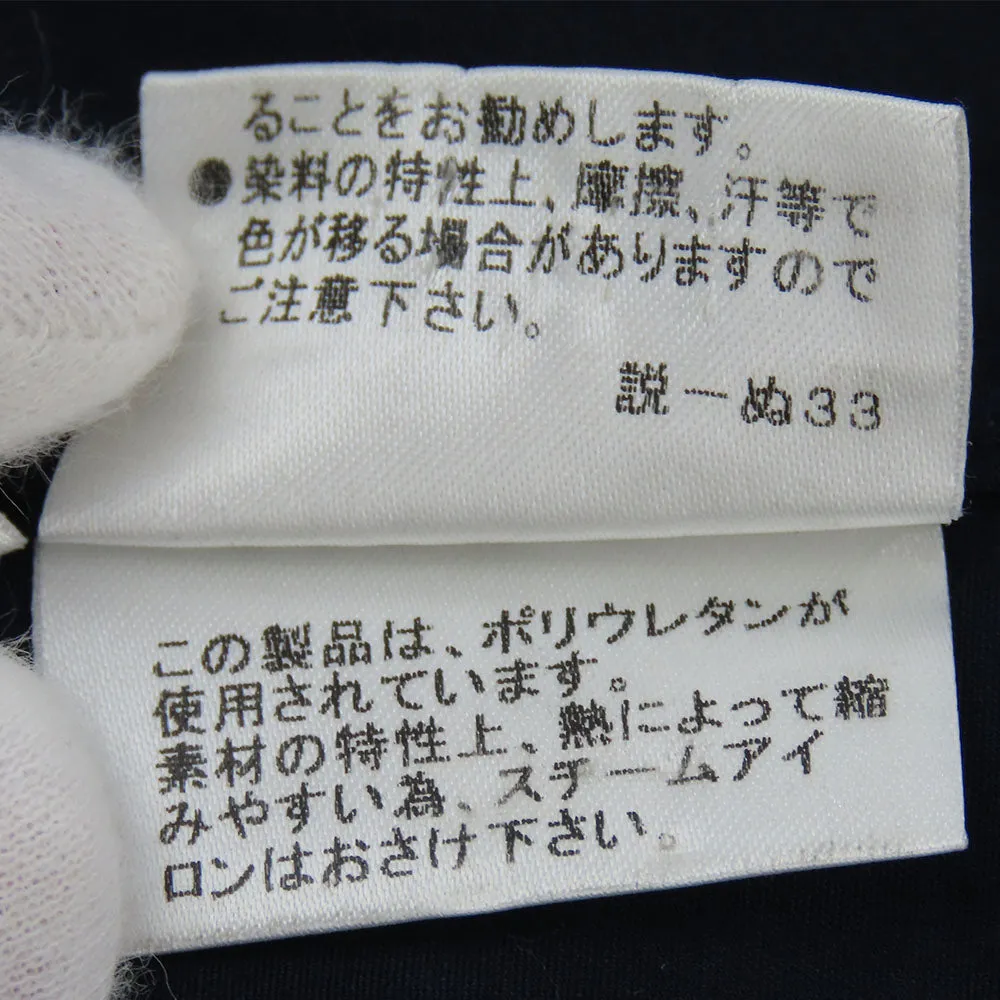 ることをお勧めします。
●染料の特性上、摩擦、汗等で
色が移る場合がありますので
ご注意下さい。
説ーぬ33
この製品は、ポリウレタンが
使用されています。
素材の特性上、熱によって縮
みやすい為、スチームアイ
ロンはおさけ下さい。